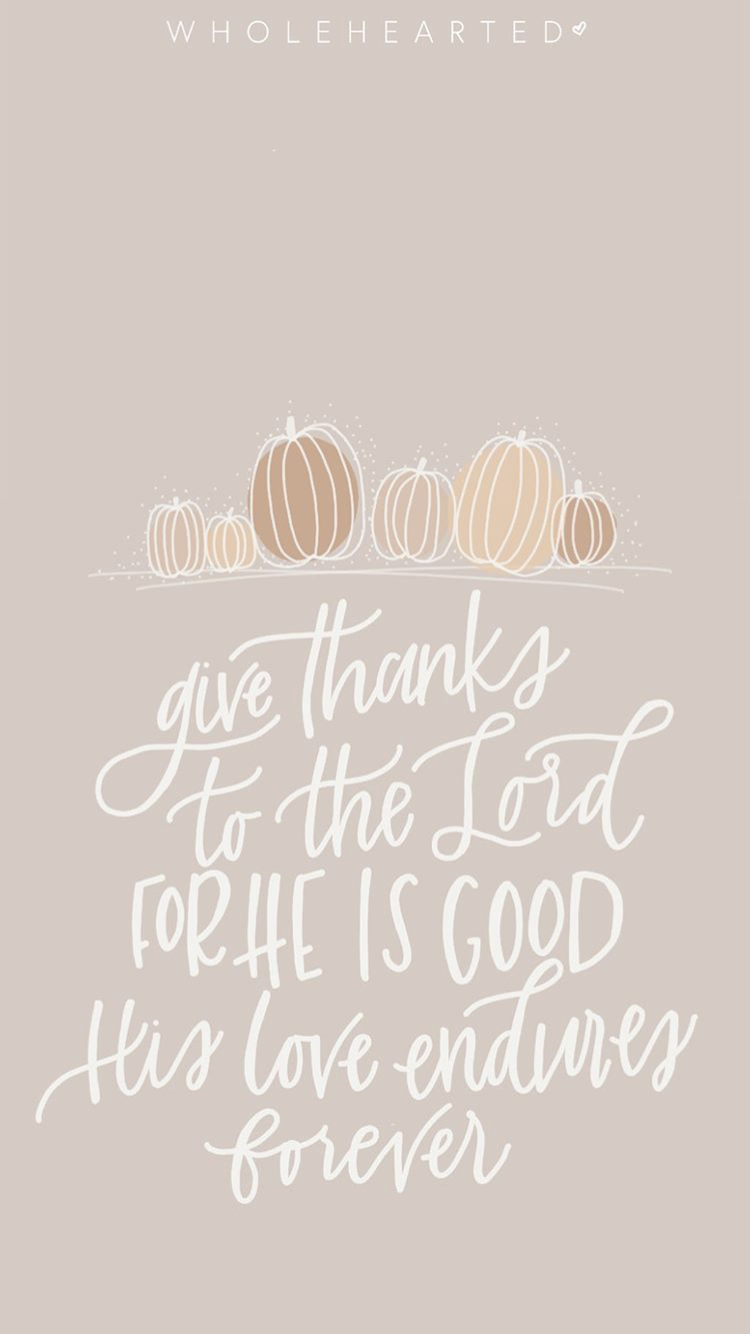 WHOLEHEARTED
give thanks
to the Lord
FOR HE IS GOOD
His love endures
forever